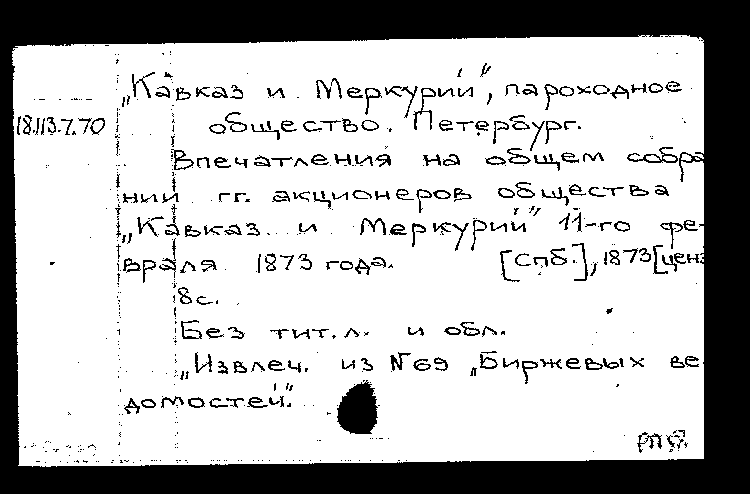 „Кавказ и Меркурий", пароходное
18.113.7.70
общество. Петербург.
Впечатления на общем собра
нии гг. акционеров общества
„Кавказ и Меркурий" 11-го фе-
враля 1873 года. [Спб.], 1873 [ценз
8 с.
Без тит. л. и обл.
„Извлеч. из № 69 „Биржевых ве-
домостей".